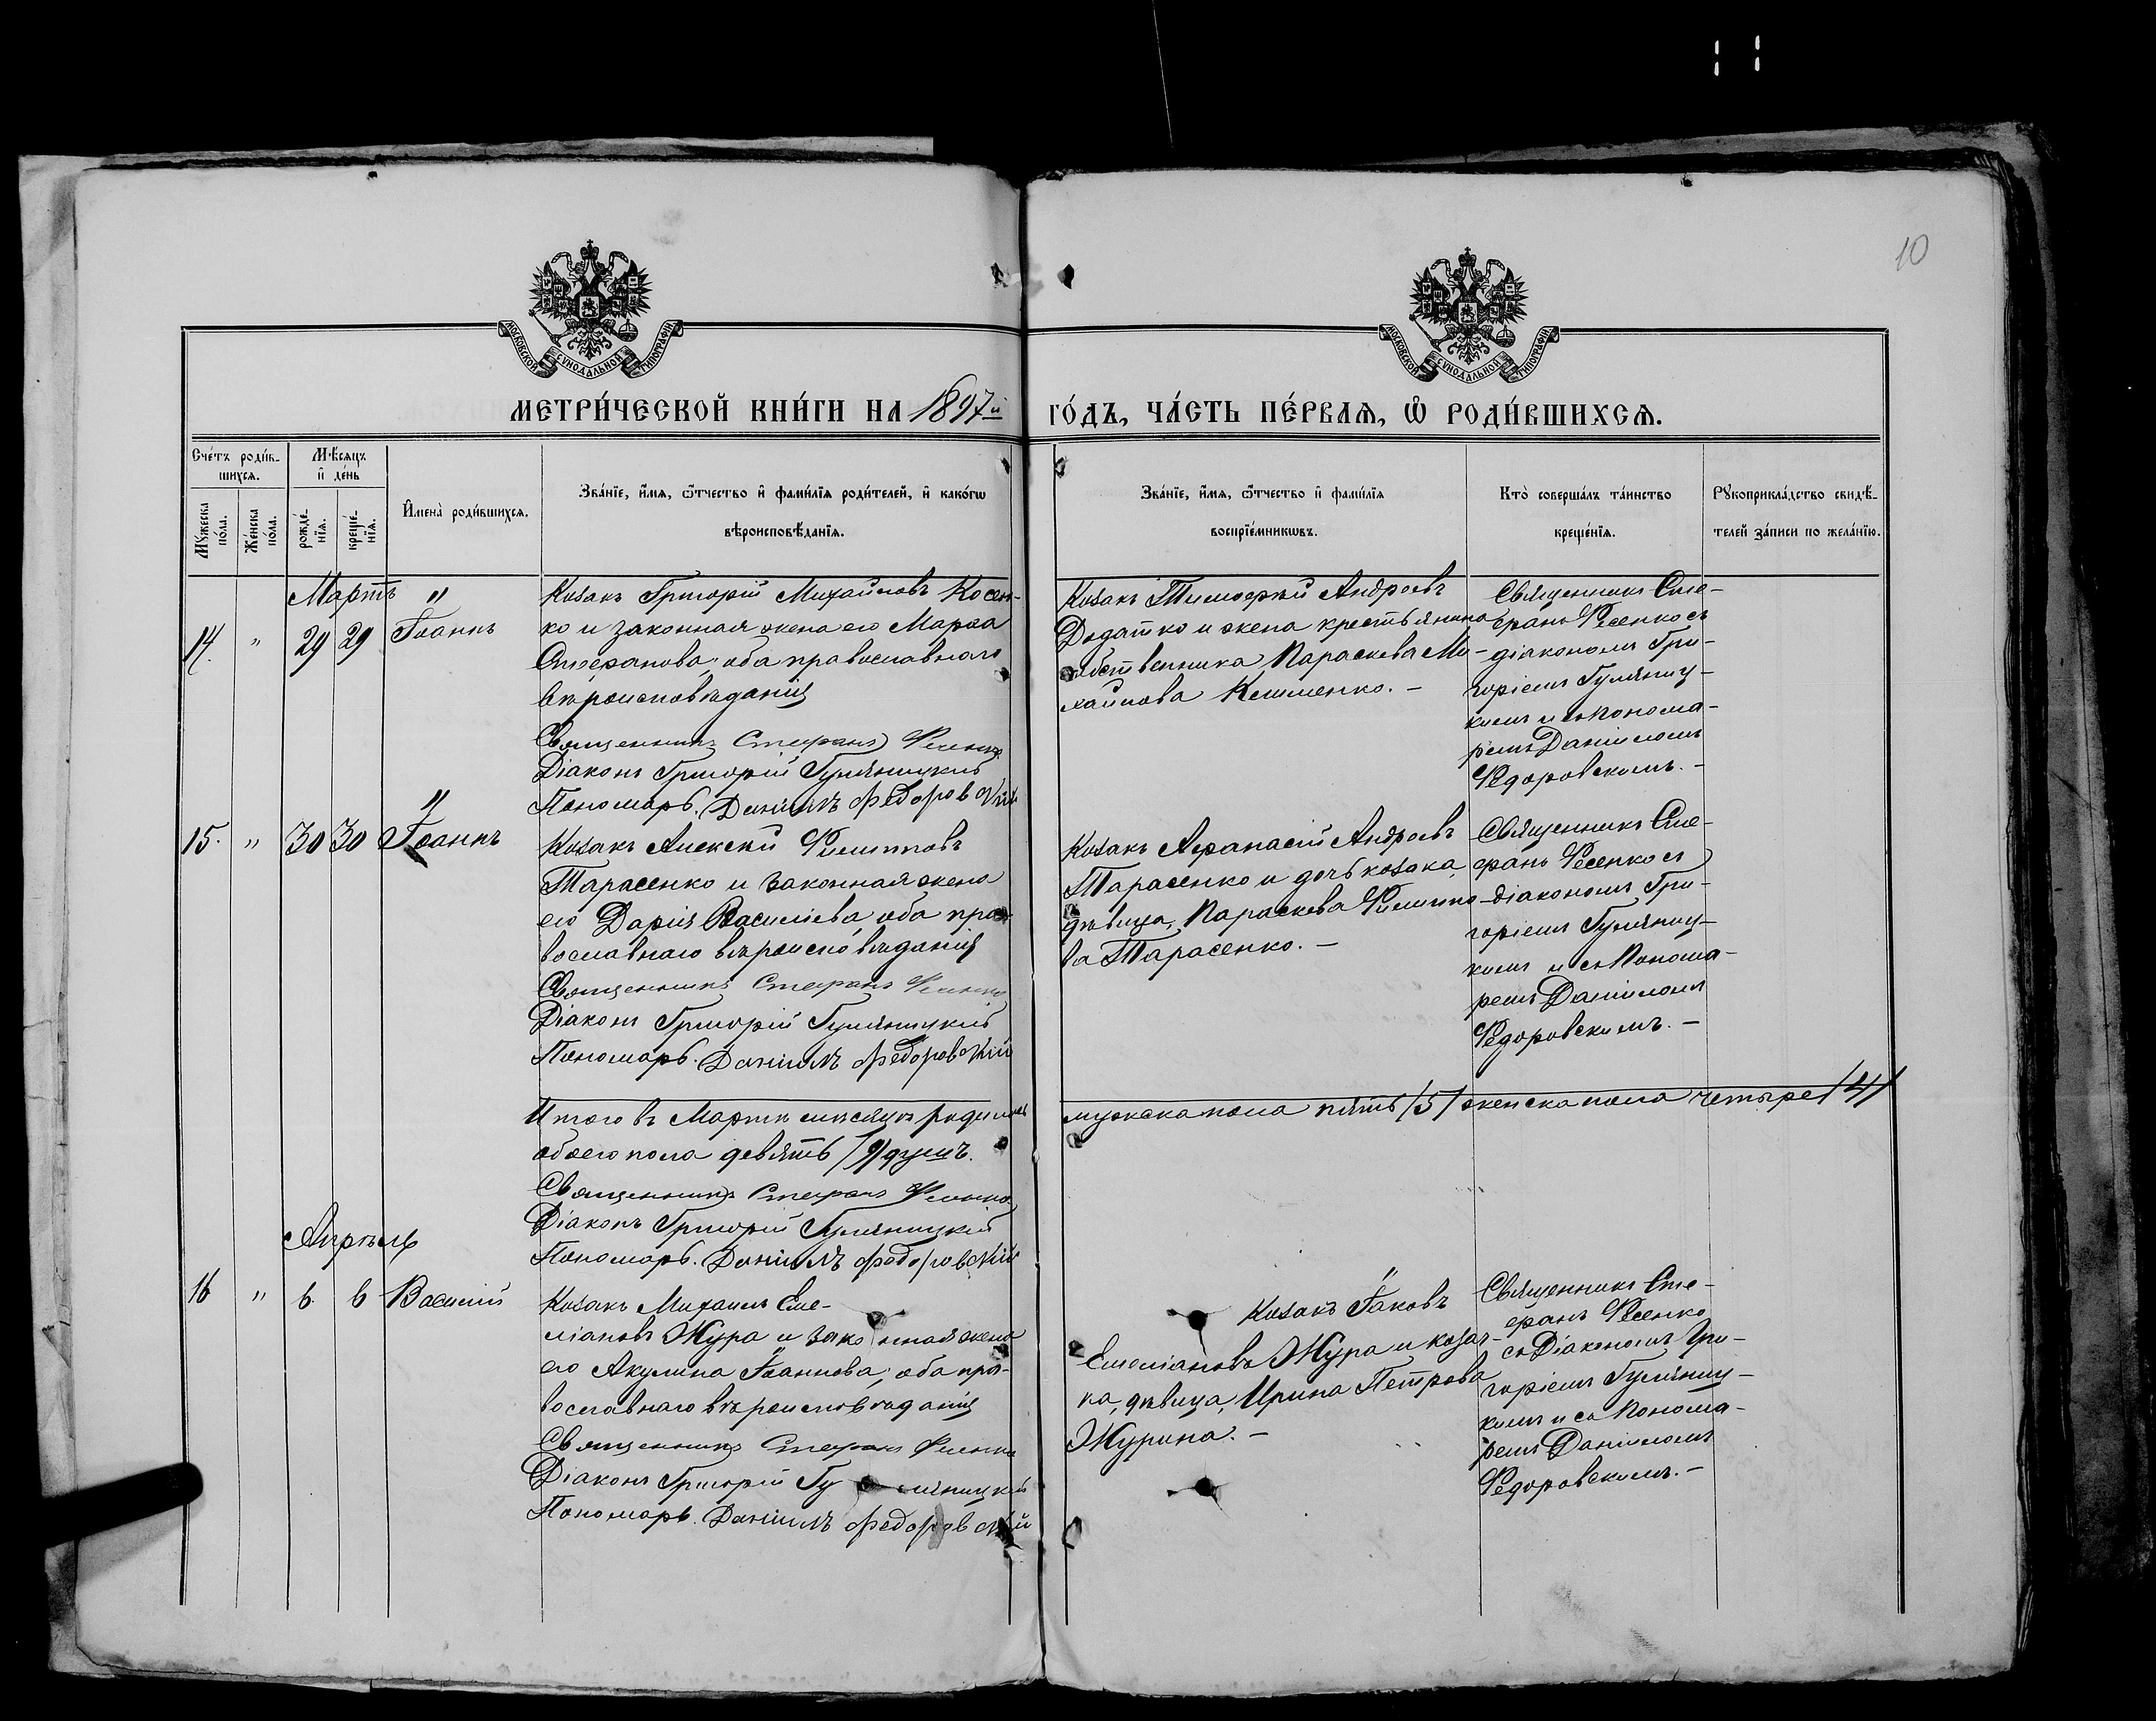 10
МОСКОВСКОЙ СѴНОДАЛЬНОЙ ТИПОГРАФІИ
МОСКОВСКОЙ СѴНОДАЛЬНОЙ ТИПОГРАФІИ
МЕТРИ́ЧЕСКОЙ КНИ́ГИ НА 1897й ГО́ДЪ, ЧА́СТЬ ПЕ́РВАѦ, Ѡ҆ РОДИ́ВШИХСѦ.
Сче́тъ роди́в-
шихсѧ.
Мꙋ́жеска по́ла.
Же́нска по́ла.
Мѣ́сѧцъ
и҆ де́нь
рожде́-
нїѧ.
креще́-
нїѧ.
И҆мена̀ роди́вшихсѧ.
Зва́нїе, и҆́мѧ, ѻ҆́тчество и҆ фамѝлїѧ роди́телей, и҆ како́гѡ
вѣроисповѣ́данїѧ.
Зва́нїе, и҆́мѧ, ѻ҆́тчество и҆ фамѝлїѧ
воспрїе́мникѡвъ.
Кто̀ соверша́лъ та́инство
креще́нїѧ.
Рꙋкоприкла́дство свидѣ́-
телей за́писи по жела́нїю.
Мартъ
14. " 29 29 Іоаннъ
Козакъ Григорій Михайловъ Косен-
ко и законная жена его Марѳа
Стефанова, оба православнаго
вѣроисповѣданія
Священникъ Стефанъ Фесенко
Діаконъ Григорій Гуляницкій
Пономарь Даніилъ Федоровскій
Козакъ Тимоѳей Андреевъ
Додатко и жена крестьянина
собственника Параскева Ми-
хайлова Клименко. –
Священникъ Сте-
фанъ Фесенко съ
діакономъ Гри-
горіемъ Гуляниц-
кимъ и съ Понома-
ремъ Даніиломъ
Федоровскимъ. –
15. " 30 30 Іоаннъ
Козакъ Алексій Филипповъ
Тарасенко и законная жена
его Дарія Василіева, оба пра-
вославнаго вѣроисповѣданія
Священникъ Стефанъ Фесенко
Діаконъ Григорій Гуляницкій
Пономарь Даніилъ Федоровскій
Козакъ Аѳанасій Андреевъ
Тарасенко и дочь козака,
дѣвица, Параскева Филиппо-
ва Тарасенко. –
Священникъ Сте-
фанъ Фесенко съ
діакономъ Гри-
горіемъ Гуляниц-
кимъ и съ Понома-
ремъ Даніиломъ
Федоровскимъ. –
Итого въ Мартѣ мѣсяцѣ родилось мужеска пола пять /5/ женска пола четыре /4/
обоего пола девять /9/ душъ.
Священникъ Стефанъ Фесенко
Діаконъ Григорій Гуляницкій
Пономарь Даніилъ Федоровскій
Апрѣль
16 " 6. 6 Василій
Козакъ Михаилъ Еме-
ліановъ Жура и законная жена
его Акулина Іоаннова, оба пра-
вославнаго вѣроисповѣданія
Священникъ Стефанъ Фесенко
Діаконъ Григорій Гуляницкій
Пономарь Даніилъ Федоровскій
Козакъ Іаковъ
Емеліановъ Жура и козач-
ка, дѣвица, Ирина Петрова
Журина. –
Священникъ Сте-
фанъ Фесенко
съ Діакономъ Гри-
горіемъ Гуляниц-
кимъ и съ Понома-
ремъ Даніиломъ
Федоровскимъ. –